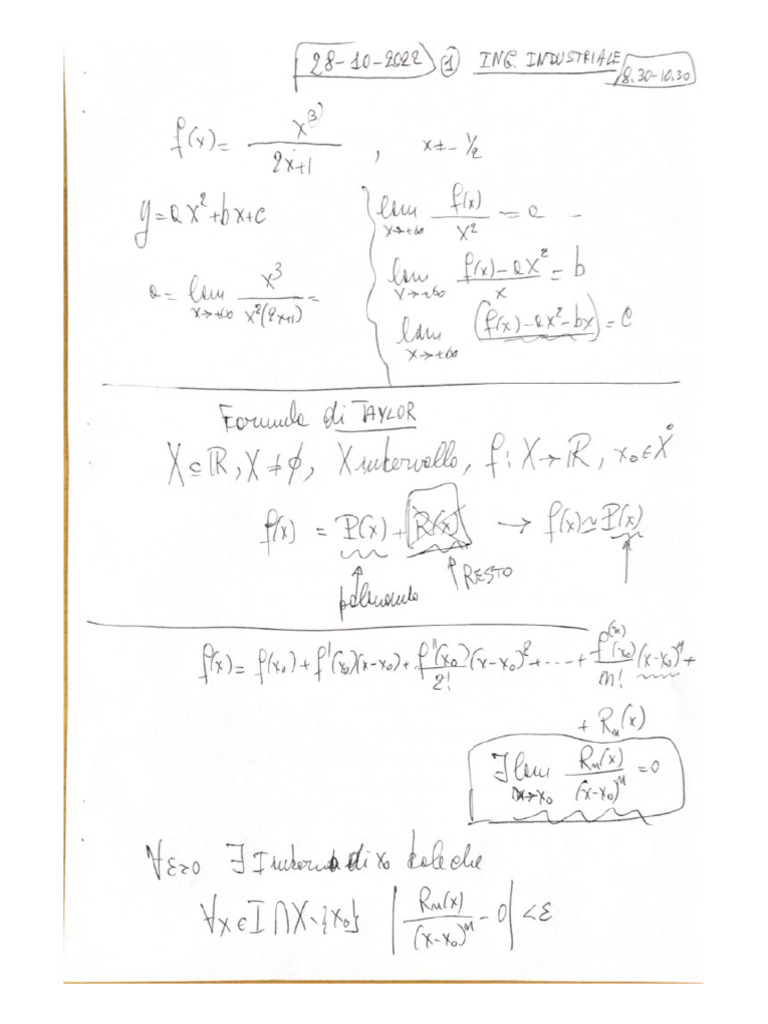 28-10-2022 ① ING. INDUSTRIALE 8.30-10.30
f(x) = x³ / (2x+1) , x ≠ -½
y = ax² + bx + c
a = lim x→+∞ x³ / (x²(2x+1)) =
lim x→+∞ f(x) / x² = a
lim x→+∞ (f(x) - ax²) / x = b
lim x→+∞ (f(x) - ax² - bx) = c
Formula di TAYLOR
X ⊆ ℝ, X ≠ ∅, X intervallo, f: X → ℝ, x₀ ∈ X̊
f(x) = P(x) + R(x) → f(x) ≃ P(x)
polinomio RESTO
f(x) = f(x₀) + f'(x₀)(x-x₀) + f''(x₀)/2! (x-x₀)² + ... + f⁽ⁿ⁾(x₀)/n! (x-x₀)ⁿ +
+ Rₙ(x)
∃ lim x→x₀ Rₙ(x) / (x-x₀)ⁿ = 0
∀ε>0 ∃ I intorno di x₀ tale che
∀x ∈ I ∩ X \ {x₀} | Rₙ(x) / (x-x₀)ⁿ - 0 | < ε